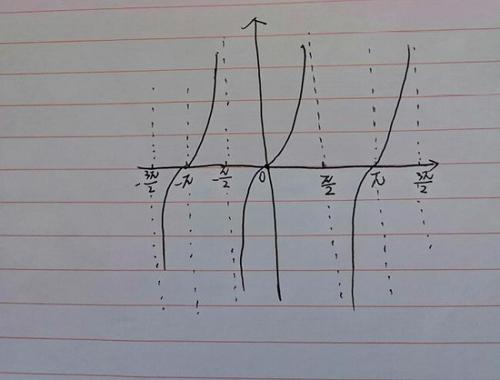 -3π/2 -π -π/2 0 π/2 π 3π/2